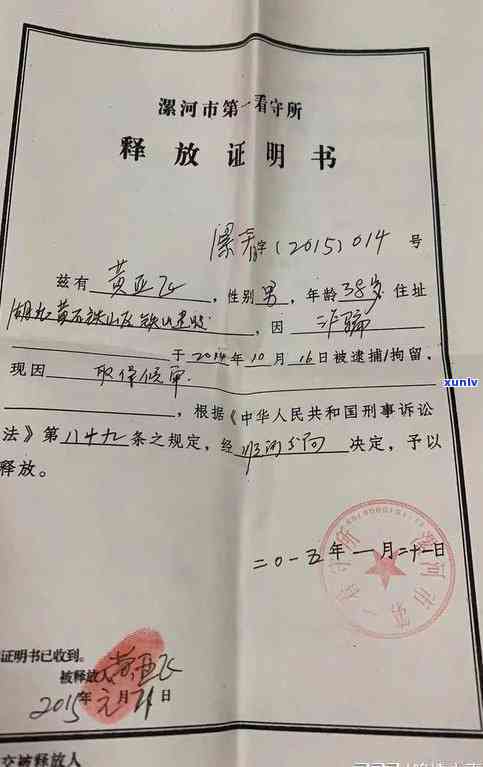 漯河市第一看守所
释放证明书
漯 字(2015)014号
兹有黄亚飞,性别男,年龄38岁住址
湖北黄石铁山区铁山 ,因诈骗
于2014年10月16日被逮捕/拘留,
现因取保候审
,根据《中华人民共和国刑事诉讼
法》第八十九条之规定,经 分局决定,予以
释放。
二〇一五年一月二十一日
漯河市第一看守所
证明书已收到。
被释放人黄亚飞
2015年元月21日
交被释放人
xunlv